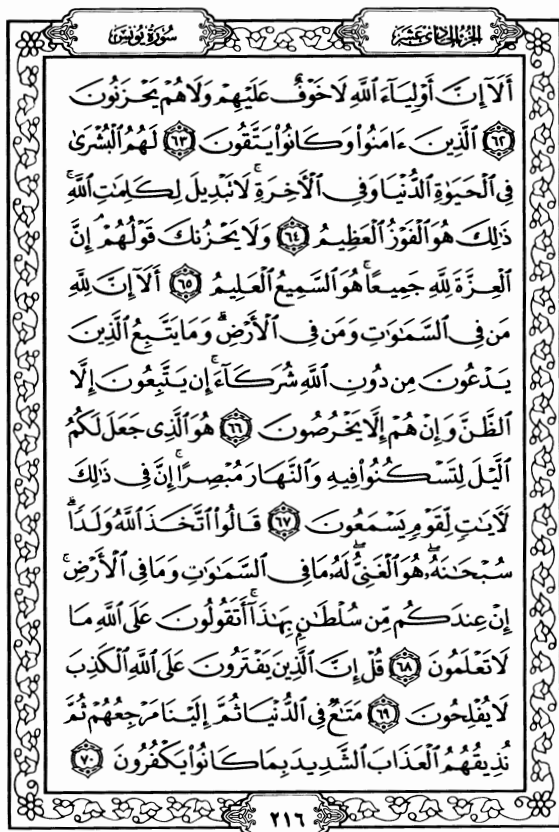 سُورَةُ يُونُسَ الجُزءُ الحَادِى عَشَرَ
أَلَآ إِنَّ أَوْلِيَآءَ ٱللَّهِ لَا خَوْفٌ عَلَيْهِمْ وَلَا هُمْ يَحْزَنُونَ
٦٢ ٱلَّذِينَ ءَامَنُوا۟ وَكَانُوا۟ يَتَّقُونَ ٦٣ لَهُمُ ٱلْبُشْرَىٰ
فِى ٱلْحَيَوٰةِ ٱلدُّنْيَا وَفِى ٱلْأَخِرَةِ ۚ لَا نَبْدِيلَ لِكَلِمَٰتِ ٱللَّهِ ۚ
ذَٰلِكَ هُوَ ٱلْفَوْزُ ٱلْعَظِيمُ ٦٤ وَلَا يَحْزُنكَ قَوْلُهُمْ ۘ إِنَّ
ٱلْعِزَّةَ لِلَّهِ جَمِيعًا ۚ هُوَ ٱلسَّمِيعُ ٱلْعَلِيمُ ٦٥ أَلَآ إِنَّ لِلَّهِ
مَن فِى ٱلسَّمَٰوَٰتِ وَمَن فِى ٱلْأَرْضِ ۗ وَمَا يَتَّبِعُ ٱلَّذِينَ
يَدْعُونَ مِن دُونِ ٱللَّهِ شُرَكَآءَ ۚ إِن يَتَّبِعُونَ إِلَّا
ٱلظَّنَّ وَإِنْ هُمْ إِلَّا يَخْرُصُونَ ٦٦ هُوَ ٱلَّذِى جَعَلَ لَكُمُ
ٱلَّيْلَ لِتَسْكُنُوا۟ فِيهِ وَٱلنَّهَارَ مُبْصِرًا ۚ إِنَّ فِى ذَٰلِكَ
لَأَيَٰتٍ لِّقَوْمٍ يَسْمَعُونَ ٦٧ قَالُوا۟ ٱتَّخَذَ ٱللَّهُ وَلَدًا ۗ
سُبْحَٰنَهُۥ ۖ هُوَ ٱلْغَنِىُّ ۖ لَهُۥ مَا فِى ٱلسَّمَٰوَٰتِ وَمَا فِى ٱلْأَرْضِ ۚ
إِنْ عِندَكُم مِّن سُلْطَٰنٍۭ بِهَٰذَآ ۚ أَتَقُولُونَ عَلَى ٱللَّهِ مَا
لَا تَعْلَمُونَ ٦٨ قُلْ إِنَّ ٱلَّذِينَ يَفْتَرُونَ عَلَى ٱللَّهِ ٱلْكَذِبَ
لَا يُفْلِحُونَ ٦٩ مَتَٰعٌ فِى ٱلدُّنْيَا ثُمَّ إِلَيْنَا مَرْجِعُهُمْ ثُمَّ
نُذِيقُهُمُ ٱلْعَذَابَ ٱلشَّدِيدَ بِمَا كَانُوا۟ يَكْفُرُونَ ٧٠
٢١٦